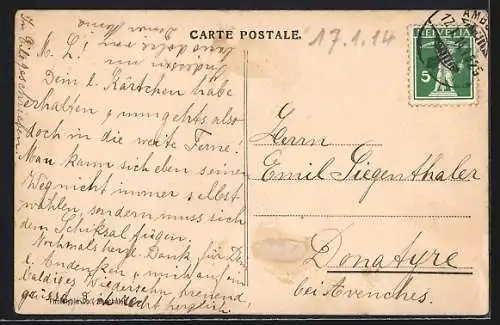 CARTE POSTALE.
17.1.14
HELVETIA
5
AMB
17.
M. L!
Dein l. Kärtchen habe
erhalten, nun gehts also
doch in die weite Ferne!
Man kann sich eben seinen
Weg nicht immer selbst
wählen, sondern muss sich
dem Schiksal fügen.
Nochmals herzl. Dank für Dein
l. Andenken, mich auf ein
baldiges Wiedersehn freuend,
grüsst recht herzlich
Herrn
Emil Siegenthaler
Donatyre
bei Avenches.